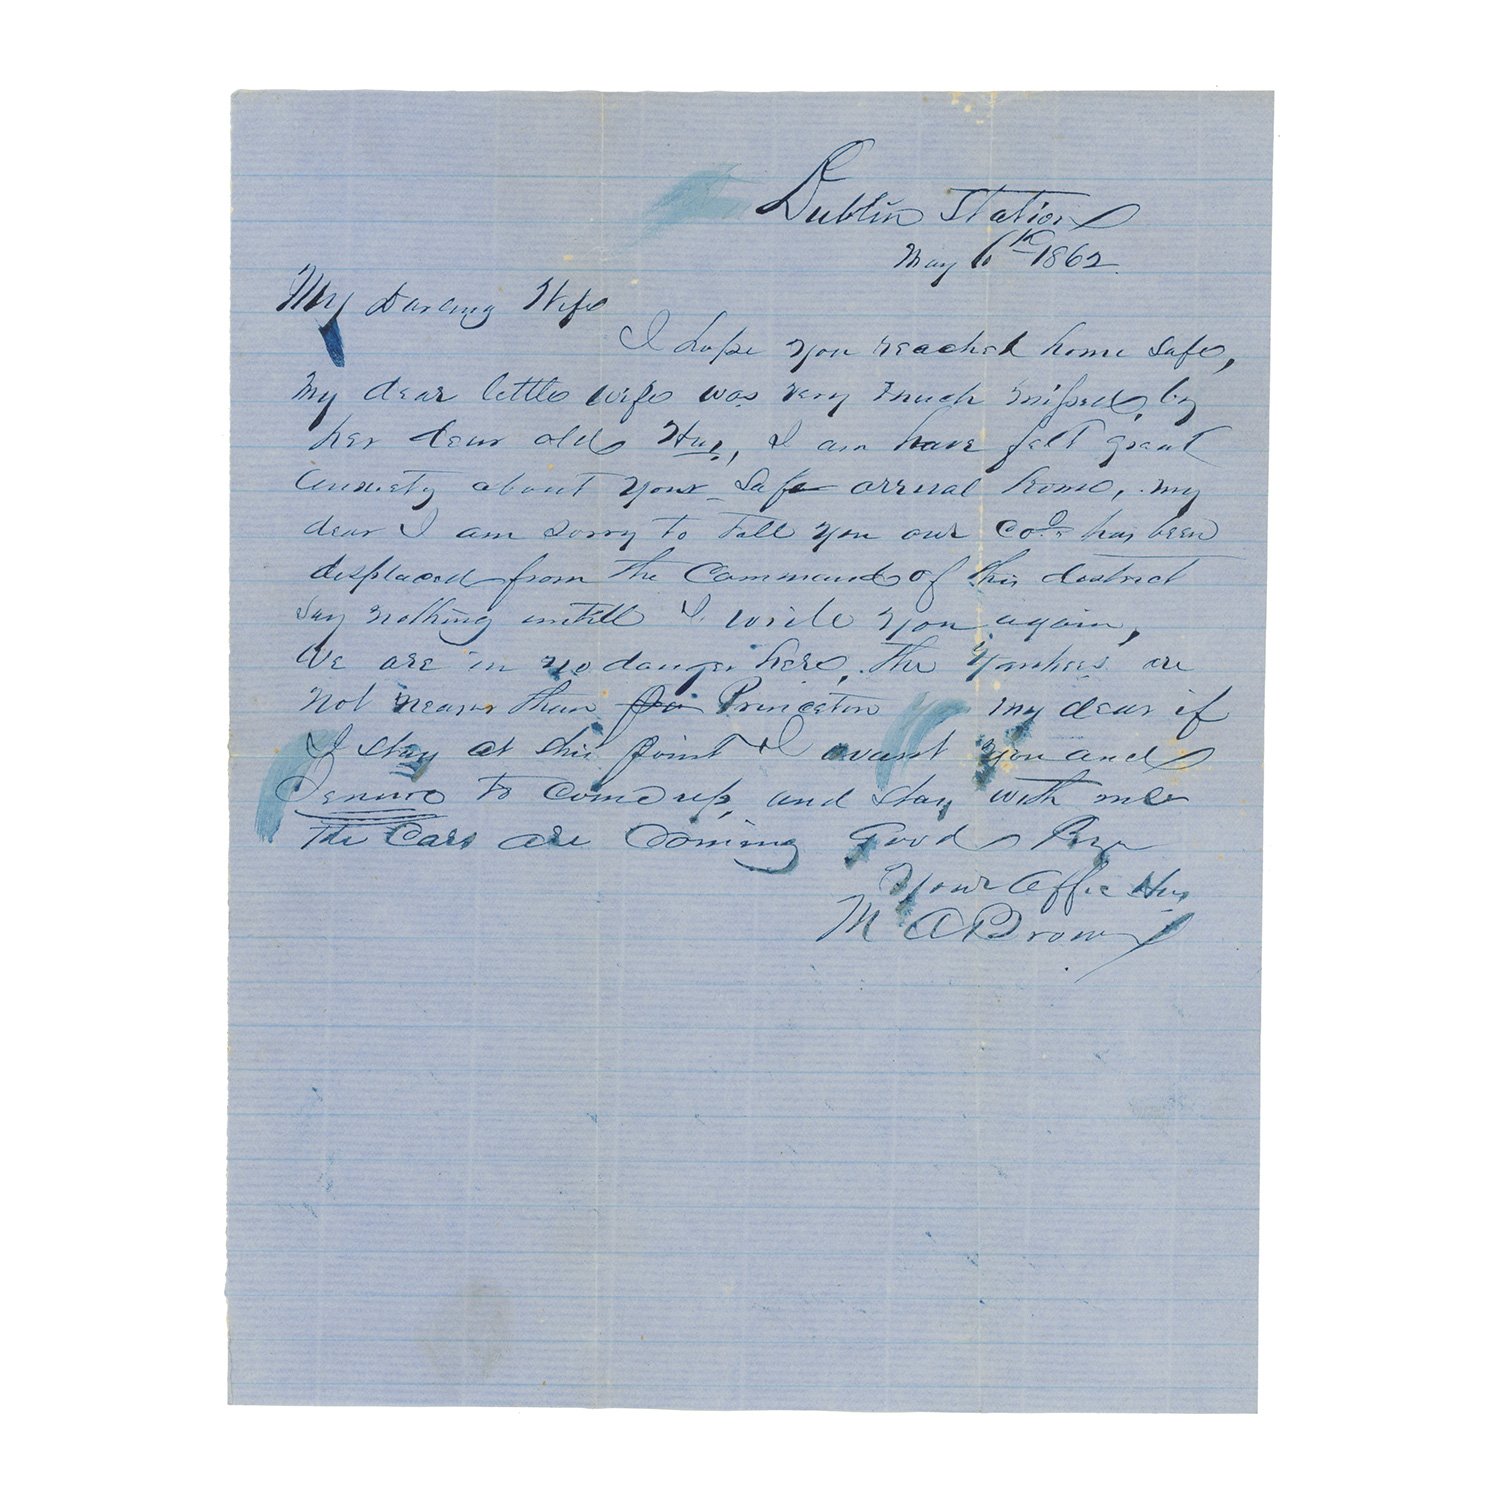 Dublin Station
May 6th 1862
My Darling Wife
I hope you reached home safe,
my dear little wife was very much missed, by
her dear old Hus, I am have felt great
anxiety about your safe arrival home, my
dear I am sorry to tell you our Col has been
displaced from the Command of this district
say nothing untill I write you again,
We are in no danger here, the Yankees are
not nearer than Princeton my dear if
I stay at this point I want you and
to come up, and stay with me
The Cars are Coming Good Bye
Your Affec Hus
M A Brown